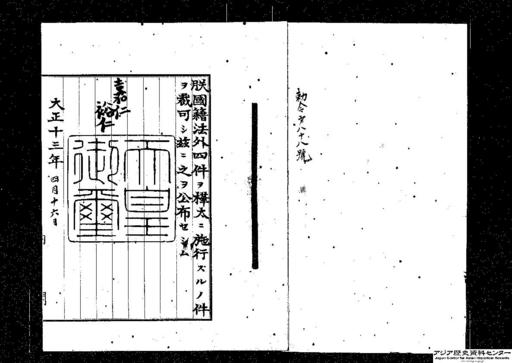 勅令第八十八號
朕國籍法外四件ヲ樺太ニ施行スルノ件
ヲ裁可シ茲ニ之ヲ公布セシム
嘉仁
裕仁
天皇
御璽
大正十三年四月十六日
アジア歴史資料センター
Japan Center for Asian Historical Records